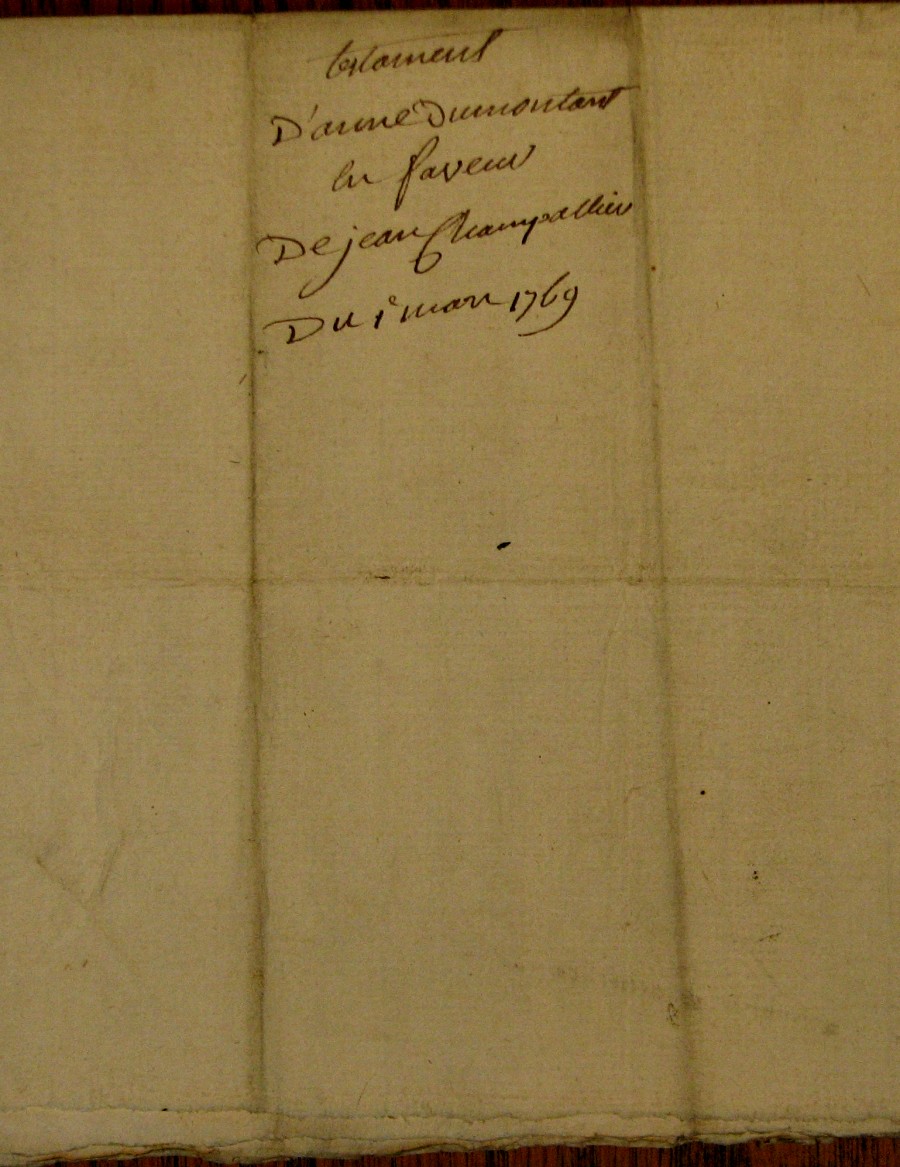 testament
D'anne Dumontant
en faveur
De jean Champallier
Du 1er mars 1769